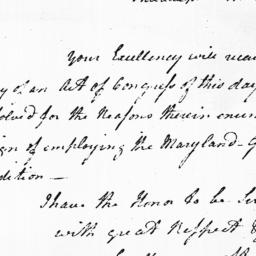 Your Excellency will rece
y of an Act of Congress of this day
olved for the Reasons therein enum
ign of employing the Maryland-G
dition —
I have the Honor to be Sir
with great Respect &